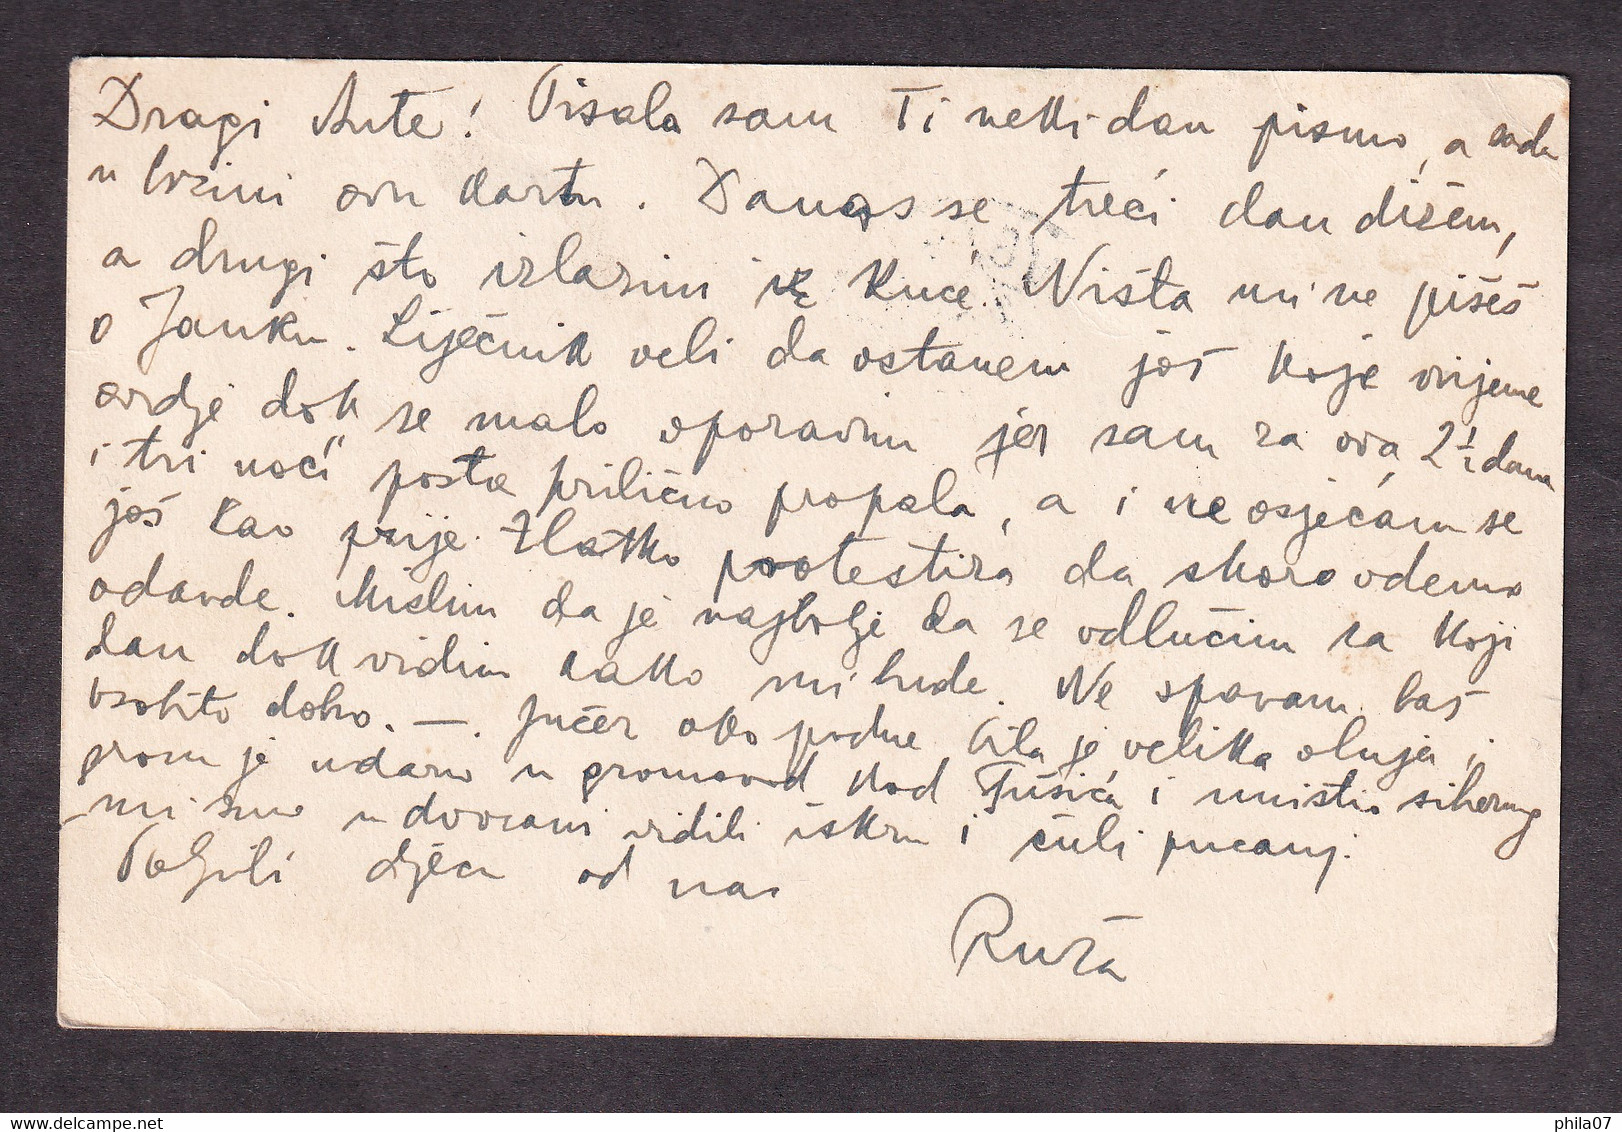 Dragi Ante! Pisala sam Ti nekki dan pismo, a sada
u brzini ovu kartu. Danas se treći dan dižem,
a drugi što izlazim iz kuće. Ništa mi ne pišeš
o Janku. Liječnik veli da ostanem još koje vrijeme
ovdje dok se malo oporavim jer sam za ova 2½ dana
i tri noći posta prilično propala, a i ne osjećam se
još kao prije. Zlatko protestira da skoro odemo
odavde. Mislim da je najbolje da se odlučim za koji
dan dok vidim kako mi bude. Ne spavam baš
osobito dobro. — . Jučer oko podne bila je velika oluja i
grom je udario u gromovod kod Tušića i uništio siherung
mi smo u dvorani vidili iskru i čuli pucanj.
Poljubi djecu od nas
Ruža
phila07